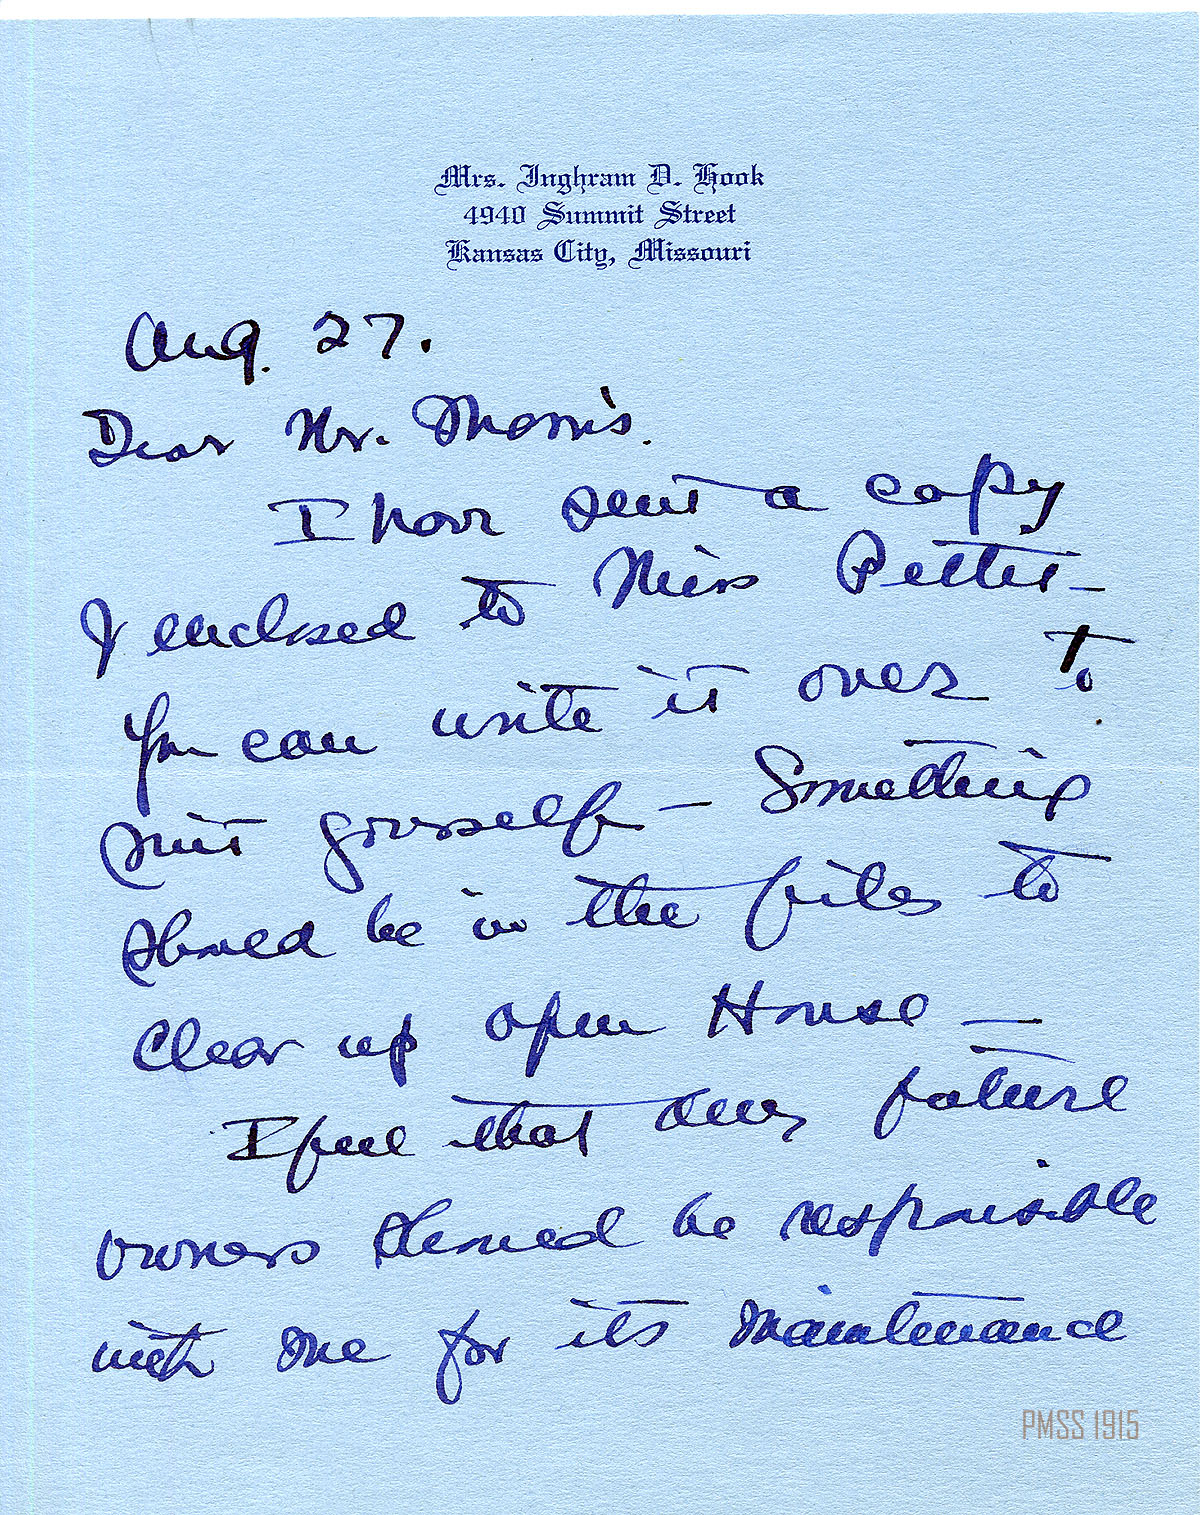 Mrs. Inghram D. Hook
4940 Summit Street
Kansas City, Missouri
Aug. 27.
Dear Mr. Morris.
I have sent a copy
I enclosed to Miss Pettit –
You can write it over to
suit yourself – Something
should be in the files to
clear up open House –
I feel that any future
owners should be responsible
with me for its maintenance
PMSS 1915